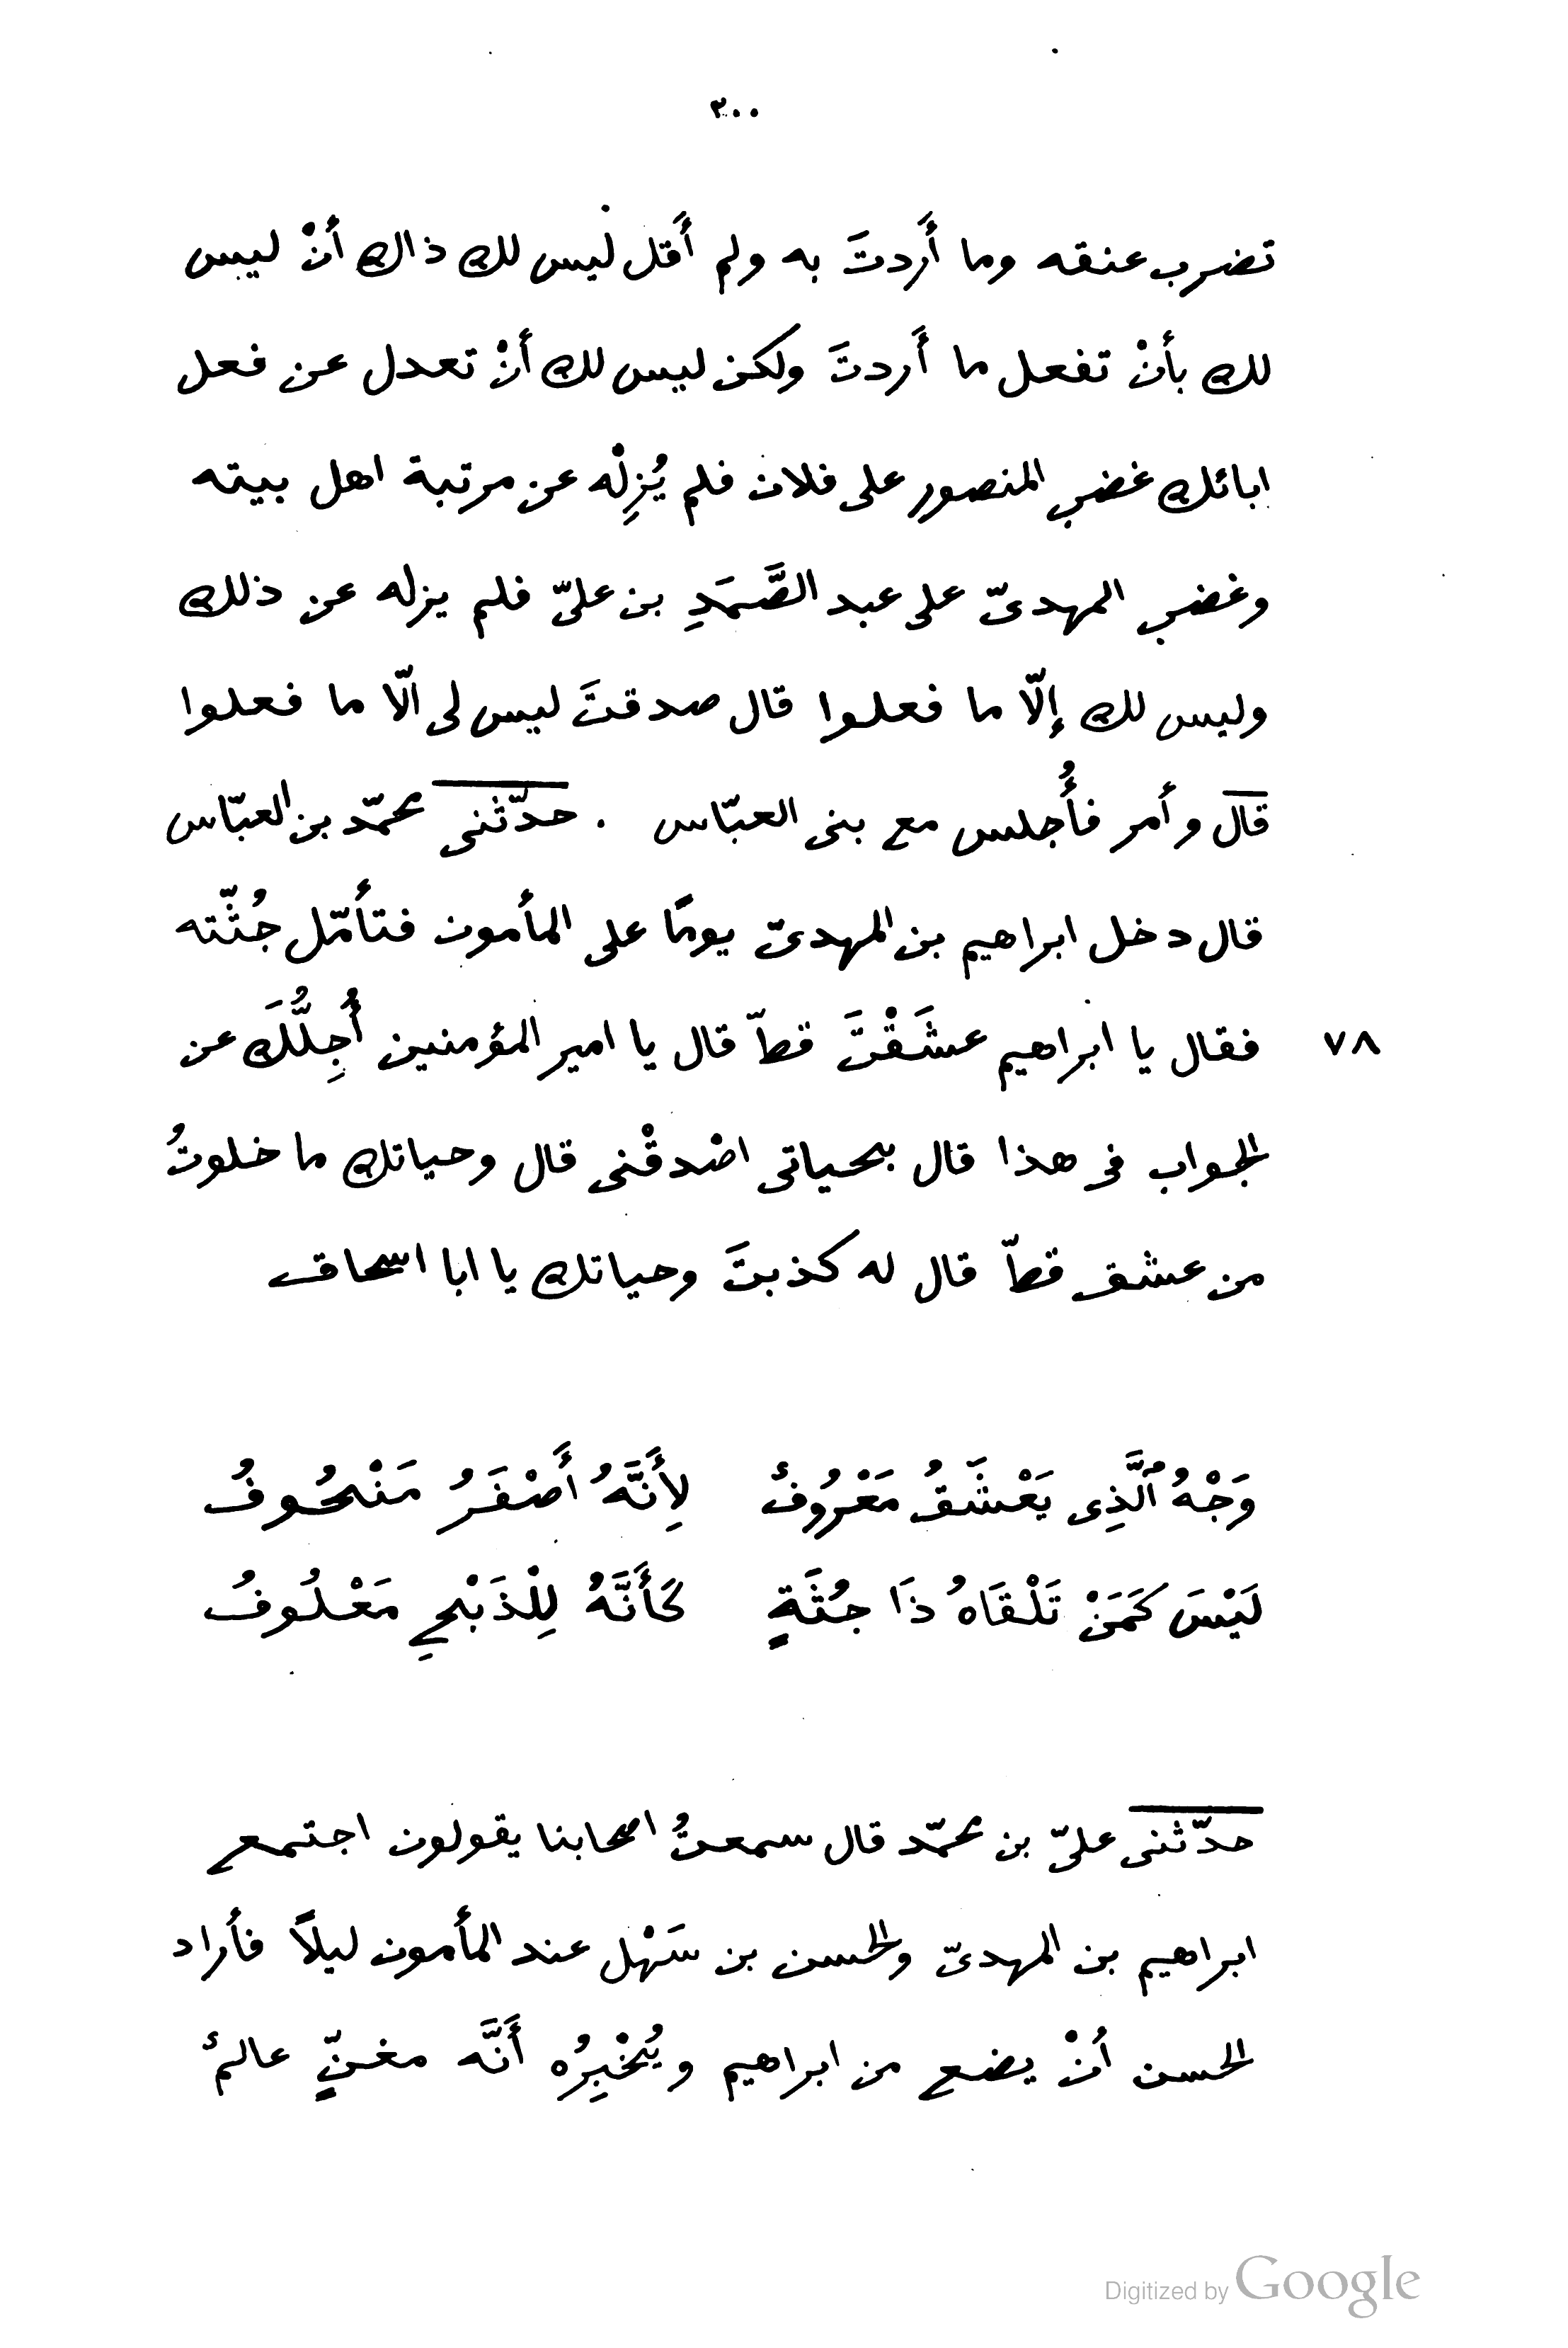 ٢٠٠
تضرب عنقه وما أَردتَ به ولم أَقل ليس لك ذاك أنْ ليس
لك بأنْ تفعل ما أَردتَ ولكن ليس لك أنْ تعدل عن فعل
ابائك غضب المنصور على فلان فلم يُزِلْه عن مرتبة اهل بيته
وغضب المهدىّ على عبد الصَّمَدِ بن علىّ فلم يزله عن ذلك
وليس لك إلّا ما فعلوا قال صدقتَ ليس لى الّا ما فعلوا
قال وأمر فأُجلس مع بنى العبّاس . حدّثنى محمّد بن العبّاس
قال دخل ابراهيم بن المهدىّ يومًا على المأمون فتأمّل جُثّته
٧٨ فقال يا ابراهيم عشَقْتَ قطّ قال يا امير المؤمنين أُجِلُّكَ عن
الجواب فى هذا قال بحياتى اصْدقْنى قال وحياتك ما خلوتُ
من عشق قطّ قال له كذبتَ وحياتك يا ابا اسحاق
وَجْهُ ٱلَّذِى يَعْشَقُ مَعْرُوفٌ لِأَنَّهُ أَصْفَرُ مَنْحُوفُ
لَيْسَ كَمَنْ تَلْقَاهُ ذَا جُثَةٍ كَأَنَّهُ لِلْذَبْحِ مَعْلُوفُ
حدّثنى علىّ بن محمّد قال سمعتُ اصحابنا يقولون اجتمع
ابراهيم بن المهدىّ والحسن بن سَهْل عند المأمون ليلاً فأراد
الحسن أنْ يضع من ابراهيم ويُخْبِرُه أَنَّه مغنٍّ عالمٌ
Digitized by Google